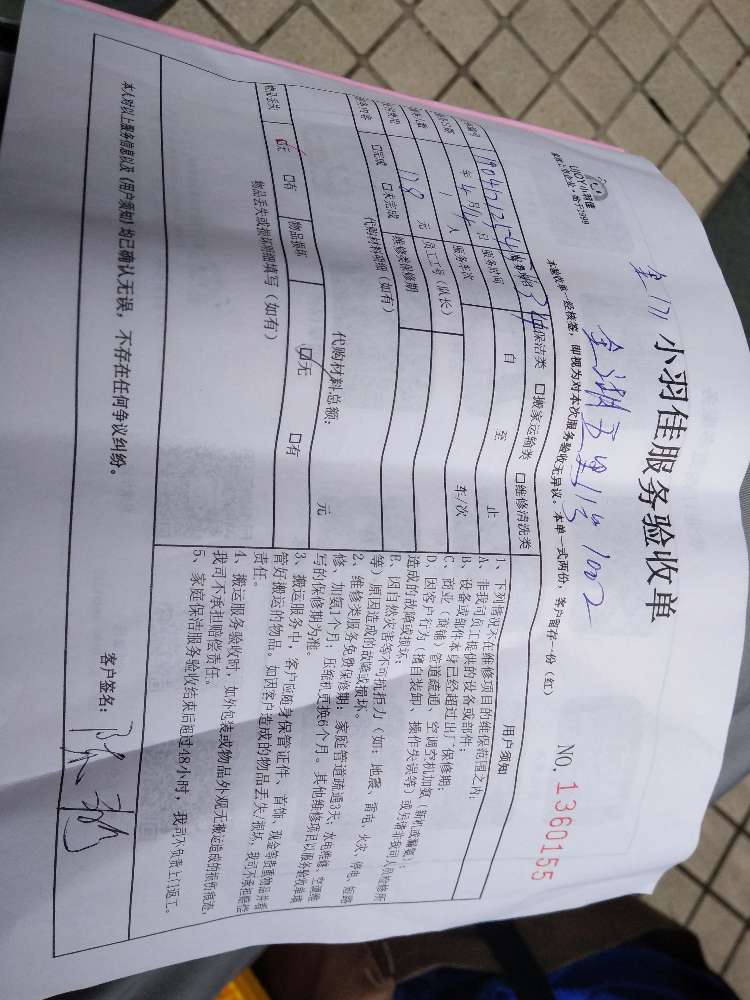 UJOY小羽佳
家政上市企业·始于1999
小羽佳服务验收单
NO. 1360155
金湖五里 1号 1002
本验收单一经核签，即视为对本次服务验收无异议。本单一式两份，客户留存一份（红）
保洁类 □搬家运输类 □维修清洗类
年 4月 日 服务时间 自 至 止
1 人 服务车次 车/次
128 元 员工工号（队长）
服务内容 □完成 □未完成 维修类保修期
代购材料明细（如有）
代购材料总额： 元
物品丢失 □无 □有 物品损坏 □无 □有
物品丢失或损坏明细填写（如有）
用户须知
1、下列情况不在维修项目的维保范围之内：
A、非我司员工提供的设备或部件；
B、设备或部件本身已经超过出厂保修期；
C、商业（商铺）管道疏通、空调空机加氨（新机或漏氨）；
D、因客户行为（擅自装卸、操作失误等）或无请非我司人员检修所
造成的故障或损坏；
E、因自然灾害等不可抗拒力（如：地震、雷电、火灾、停电、短路
等）原因造成的故障或损坏。
2、维修类服务免费保修期：家庭管道疏通3天；水电维修、空调维
修、加氨1个月；压缩机更换6个月。其他维修项目以服务验收单填
写的保修期为准。
3、搬运服务中，客户应随身保管证件、首饰、现金等贵重物品并看
管好搬运的物品。如因客户造成的物品丢失/损坏，我司不承担赔偿
责任。
4、搬运服务验收时，如外包装或物品外观无搬运造成的损伤痕迹，
我司不承担赔偿责任。
5、家庭保洁服务验收结束后超过48小时，我司不负责上门返工。
本人对以上服务信息以及《用户须知》均已确认无误，不存在任何争议纠纷。
客户签名：